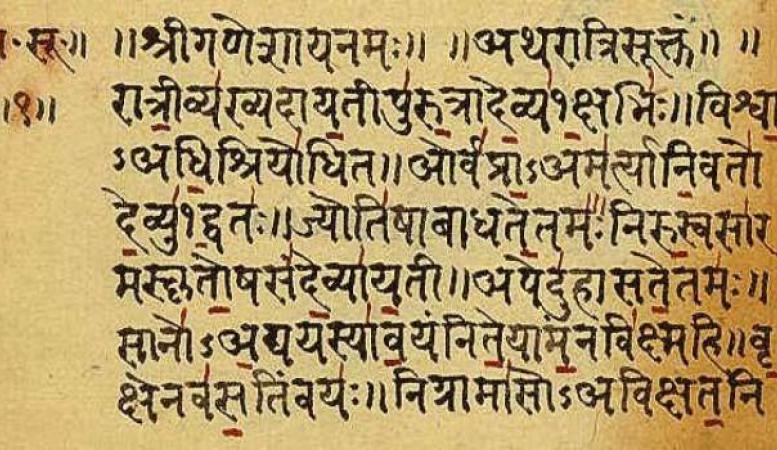 .सू.॥ ॥श्रीगणेशायनमः॥ ॥अथरात्रिसूक्तं॥ ॥
॥१॥ रात्रीव्यख्यदायतीपुरुत्रादेव्य१क्षभिः॥विश्वा
ऽअधिश्रियोधित॥ओर्वप्राऽअमर्त्यानिवतो
देव्यु१द्वतः॥ज्योतिषाबाधतेतमः॥निरुस्वसार
मस्कृतोषसंदेव्यायती॥अपेदुहासतेतमः॥
सानोऽअद्ययस्यावयंनितेयामन्नविक्ष्महि॥वृ
क्षेनवसतिंवयः॥निग्रामासोऽअविक्षतनि